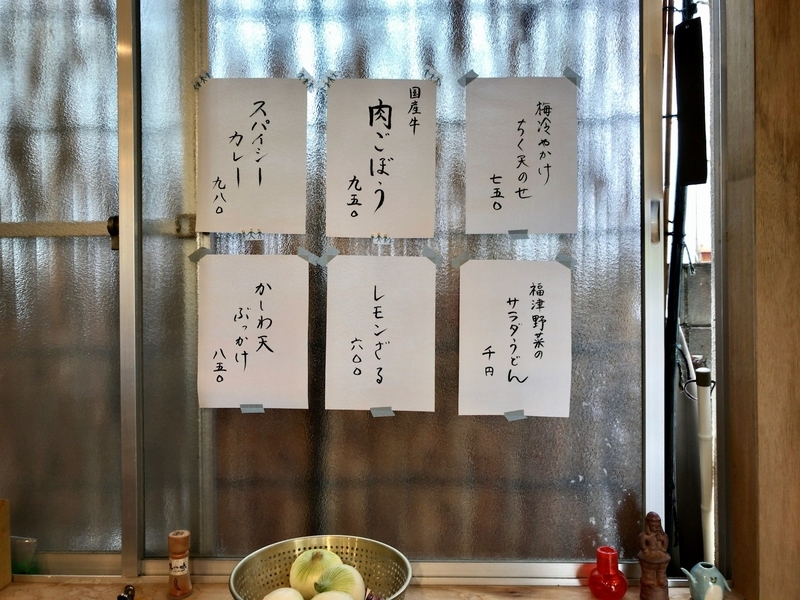 梅冷やかけ
ちく天のせ
七五〇
国産牛
肉ごぼう
九五〇
スパイシー
カレー
九八〇
福津野菜の
サラダうどん
千円
レモンざる
六〇〇
かしわ天
ぶっかけ
八五〇